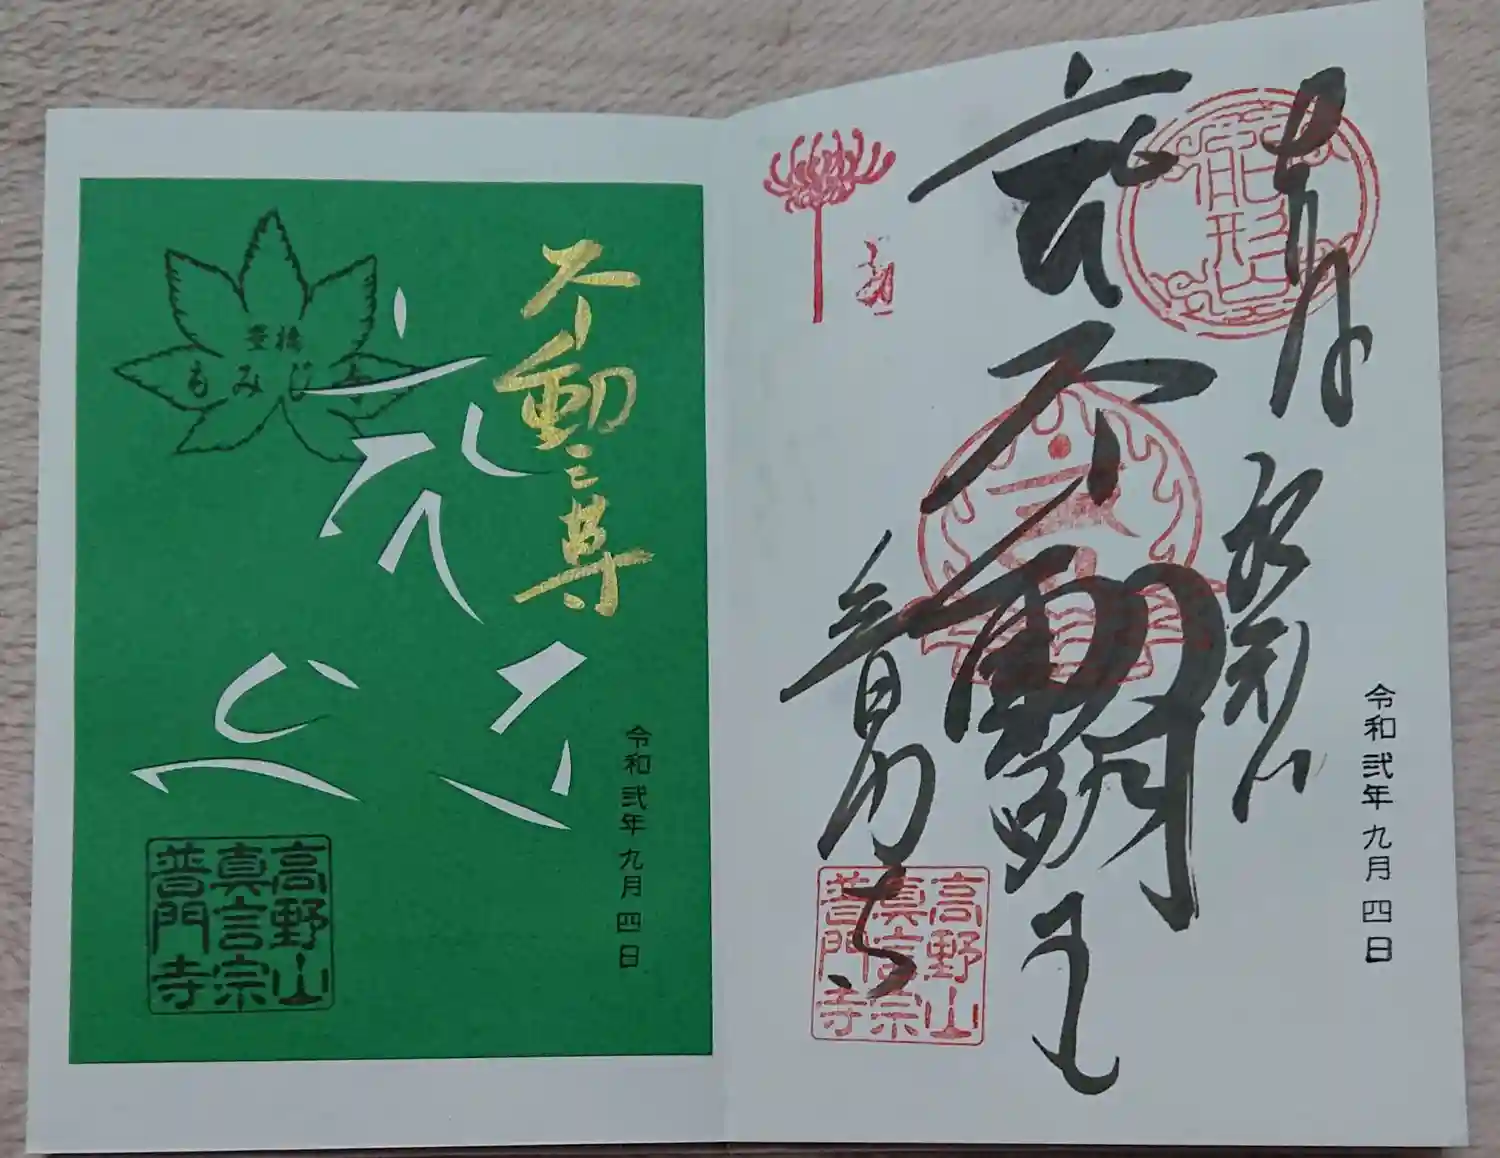 奉拝
不動明王
普門寺
令和弐年九月四日
高野山
真言宗
普門寺
不動三尊
豊橋
もみじ寺
令和弐年九月四日
高野山
真言宗
普門寺